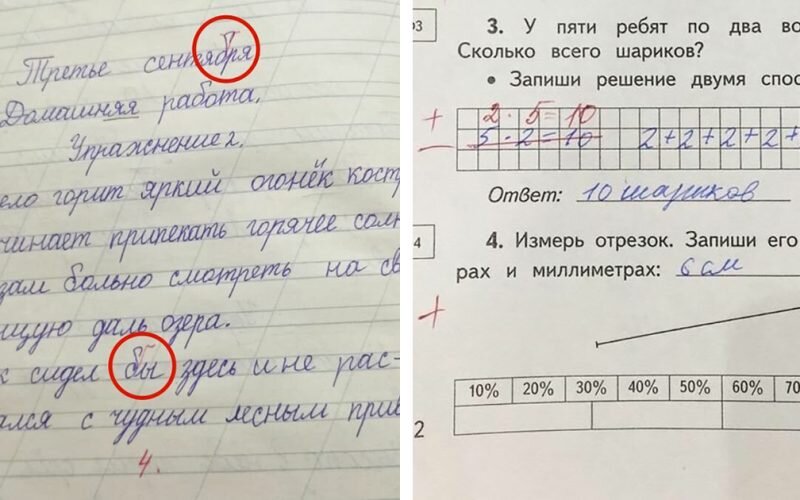 Третье сентября
Домашняя работа.
Упражнение 2.
ело горит яркий огонёк кост
чинает припекать горячее солн
зам больно смотреть на св
ищую даль озера.
к сидел бы здесь и не рас-
ался с чудным лесным прив
4.
3. У пяти ребят по два во
Сколько всего шариков?
• Запиши решение двумя спос
+ 2 · 5 = 10
— 5 · 2 = 10 2 + 2 + 2 + 2 +
Ответ: 10 шариков
4
4. Измерь отрезок. Запиши его
рах и миллиметрах: 6 см
+
10% 20% 30% 40% 50% 60% 70
2